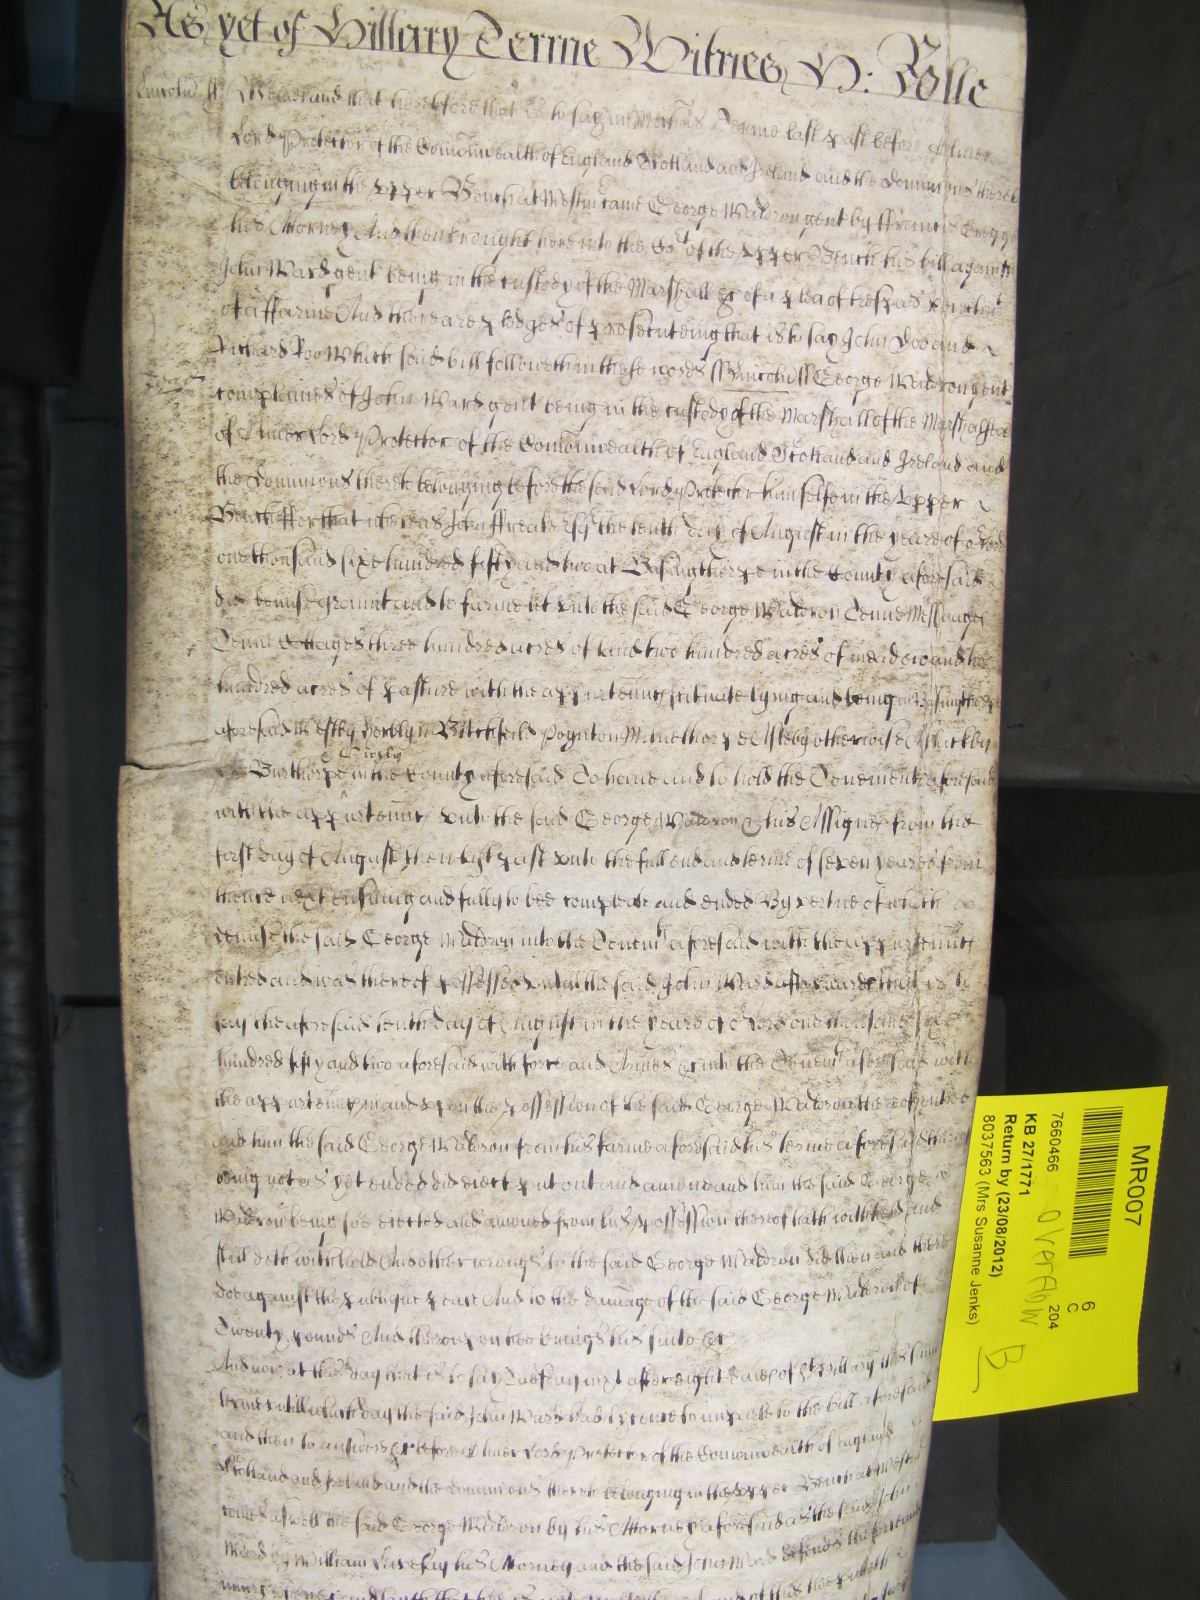 As yet of Hillary Terme Witnes H: Rolle
Lincoln ss Memorand that heretofore that is to say in Terme last past before Oliver
Lord Protector of the Comonwealth of England Scotland and Ireland and the Dominions
belonging in the Upper Bench at Westm came George Waldron gent by ffrancis
his Attorney And then brought here into the Cort of the Upper Bench his bill against
John Ward gent being in the custody of the Marshall &c of a plea of trespas &
of a ffarme And there are pledges of prosecuteing that is to say John Doo and
Richard Roo Which said bill followeth in these words ss Lincoln ss George Waldron gent
complaines of John Ward gent being in the custody of the Marshall of the Marshalsea
of Oliver Lord Protector of the Comonwealth of England Scotland and Ireland and
the Dominions thereto belonging before the said Lord Protector himselfe in the Upper
Bench ffor that whereas John the tenth day of August in the yeare of or Lord
one thousand sixe hundred fifty and two at Basingthorpe in the County aforesaid
did demise graunt and to farme let unto the said George Waldron Tenne Messuages
Tenne Cottages three hundred acres of land two hundred acres of meadow and
hundred acres of pasture with the appurtenncs scituate lying and being in Basingthorpe
aforesaid Westby Bitchfeild Poynton Millthorpe Asleby otherwise
& Kirkby
Burthorpe in the County aforesaid To have and to hold the Tenements aforesaid
with the appurtenncs unto the said George Waldron & his Assignes from the
first day of August then last past unto the full end and terme of seven yeares from
thence next ensuing and fully to bee compleate and ended By vertue of which
demise the said George Waldron into the Tenemts aforesaid with the appurtenncs
entred and was thereof possessed untill the said John Ward afterwards that is to
say the aforesaid tenth day of August in the yeare of or Lord one thousand sixe
hundred fifty and two aforesaid with force and Armes &c into the Tenemts aforesaid with
the appurtenncs in and upon the possession of the said George Waldron thereof entred
and him the said George Waldron from his farme aforesaid his terme aforesaid therein
being not as yet ended did eiect put out and amove and him the said George
Waldron being soe eiected and amoved from his possession thereof hath withheld and
still doth withhold And other wrongs to the said George Waldron did then and there
doe against the publique peace And to the damage of the said George Waldron of
Twenty pounds And thereupon hee brings his suite &c
And now at this day that is to say next after eight dayes of St Hillary this same
terme untill which day the said John Ward had lycence to imparle to the bill aforesaid
and then to answere &c before Oliver Lord Protector of the Comonwealth of England
Scotland and Ireland and the Dominions thereto belonging in the Upper Bench at Westm
comes aswell the said George Waldron by his Attorney aforesaid as the said John
Ward by William his Attorney and the said John Ward defends the force and
MR007
6
C
204
7660466
OVERFLOW
KB 27/1771
Return by (23/08/2012)
8037563 (Mrs Susanne Jenks)
B